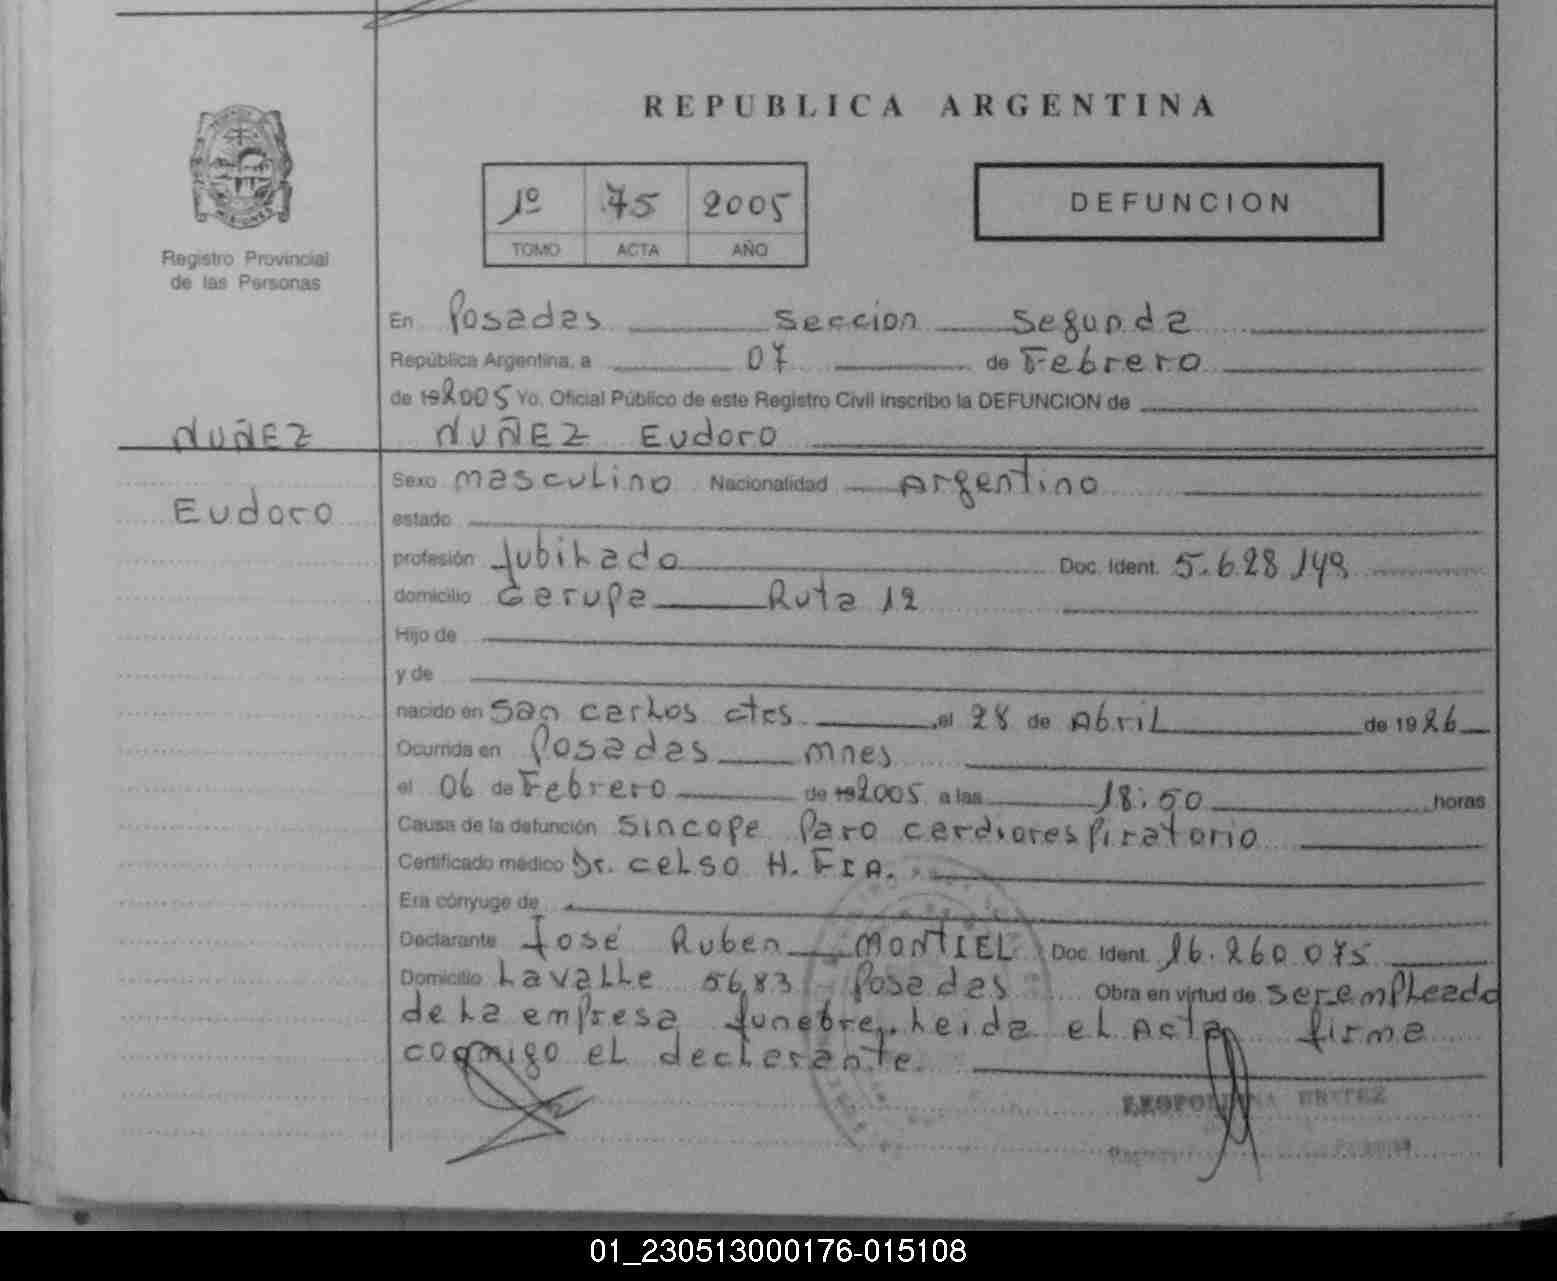 REPUBLICA ARGENTINA
1º 75 2005
TOMO ACTA AÑO
DEFUNCION
Registro Provincial
de las Personas
En Posadas seccion segunda
República Argentina, a 07 de Febrero
de 192005 Yo. Oficial Público de este Registro Civil inscribo la DEFUNCION de
NUÑEZ
NUÑEZ Eudoro
Eudoro
Sexo masculino Nacionalidad Argentino
estado
profesión Jubilado Doc. Ident. 5.628.149
domicilio Garupa Ruta 12
Hijo de
y de
nacido en San Carlos ctes el 28 de Abril de 1926
Ocurrida en Posadas mnes
el 06 de Febrero de 192005 a las 18:50 horas
Causa de la defunción Sincope Paro cardiorespiratorio
Certificado médico Dr. Celso H. FIA.
Era cónyuge de
Declarante José Ruben MONTIEL Doc. Ident. 16.260.075
Domicilio Lavalle 5683 Posadas Obra en virtud de ser empleado
de la empresa funebre, leida el Acta firma
conmigo el declarante.
01_230513000176-015108